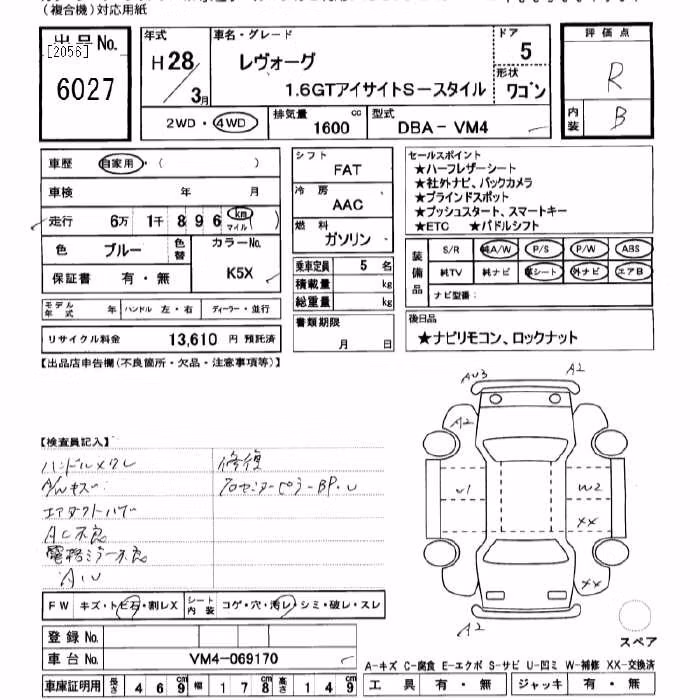 (複合機)対応用紙
出品No.
[2056]
6027
年式
H28/3月
車名・グレード
レヴォーグ
1.6GTアイサイトSースタイル
ドア
5
形状
ワゴン
評価点
R
内装
B
2WD・4WD
排気量
1600 cc
型式
DBA-VM4
車歴 自家用・( )
車検 年 月
走行 6万 1千 8 9 6 km マイル ( )
色 ブルー 色替
カラーNo.
K5X
保証書 有・無
モデル年式 年 ハンドル 左・右 ディーラー・並行
リサイクル料金 13,610 円 預託済
シフト
FAT
冷房
AAC
燃料
ガソリン
乗車定員 5 名
積載量 kg
総重量 kg
書類期限
月 日
セールスポイント
★ハーフレザーシート
★社外ナビ、バックカメラ
★ブラインドスポット
★プッシュスタート、スマートキー
★ETC ★パドルシフト
装備品
S/R 純A/W P/S P/W ABS
純TV 純ナビ 革シート 外ナビ エアB
ナビ型番:
後日品
★ナビリモコン、ロックナット
【出品店申告欄(不良箇所・欠品・注意事項等)】
【検査員記入】
ハンドルスレ
A/Wキズ
エアダクト
AC不良
電格ミラー不良
修復
FW キズ・トビ石・割レX
シート内装 コゲ・穴・汚レ・シミ・破レ・スレ
登録No.
車台No. VM4-069170
車庫証明用 長さ 469cm 幅 178cm 高さ 149cm
AU3
A2
A2
U1
W2
XX
XX
A2
スペア
A-キズ C-腐食 E-エクボ S-サビ U-凹ミ W-補修 XX-交換済
工具 有・無 ジャッキ 有・無